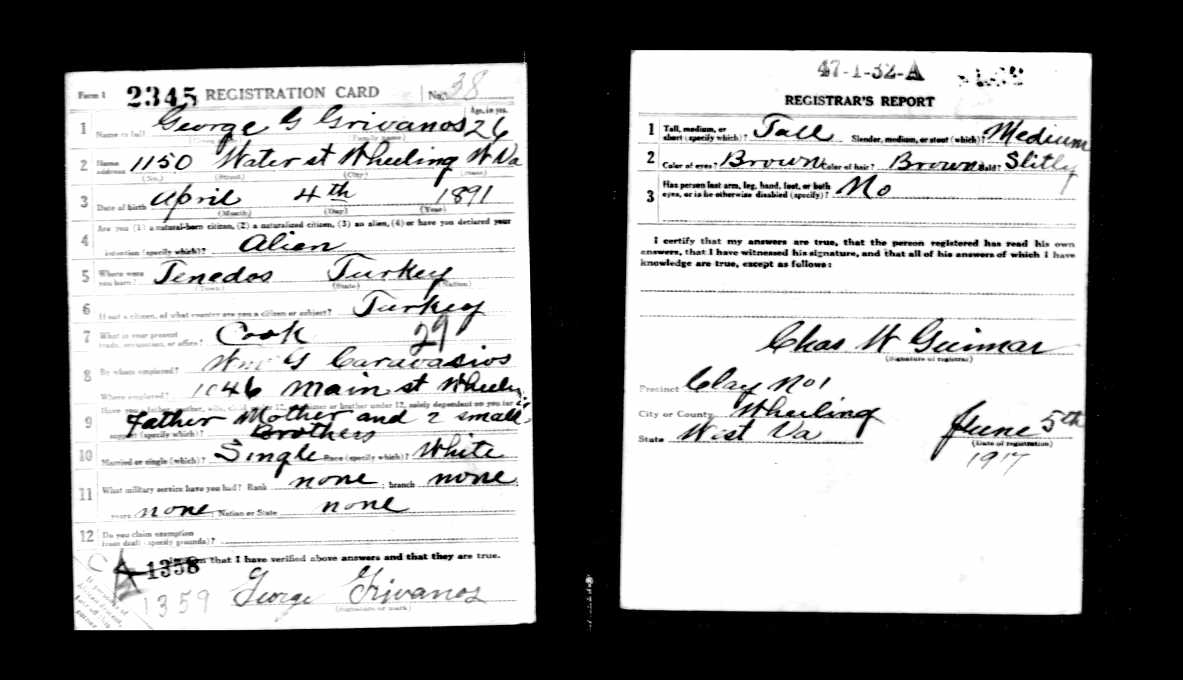 Form 1 2345 REGISTRATION CARD No. 38
1 Name in full George G Grivanos Age, in yrs. 26
(Family name)
2 Home address 1150 Water st Wheeling W Va
(No.) (Street) (City) (State)
3 Date of birth April 4th 1891
(Month) (Day) (Year)
Are you (1) a natural-born citizen, (2) a naturalized citizen, (3) an alien, (4) or have you declared your
4 intention (specify which)? Alien
5 Where were you born? Tenedos Turkey
(Town) (State) (Nation)
6 If not a citizen, of what country are you a citizen or subject? Turkey
7 What is your present trade, occupation, or office? Cook 29
8 By whom employed? Wm G Caravasios
Where employed? 1046 Main st Wheeling
9 Have you a father, mother, wife, child under 12, or a sister or brother under 12, solely dependent on you for
support (specify which)? Father Mother and 2 small
Brothers
10 Married or single (which)? Single Race (specify which)? White
11 What military service have you had? Rank none; branch none;
years none; Nation or State none
12 Do you claim exemption
from draft (specify grounds)?
that I have verified above answers and that they are true.
A 1358
1359 George Grivanos
(Signature or mark)
If person is of African descent, tear off this corner
47-1-32-A
REGISTRAR'S REPORT
1 Tall, medium, or short (specify which)? Tall Slender, medium, or stout (which)? Medium
2 Color of eyes? Brown Color of hair? Brown Bald? Slitly
3 Has person lost arm, leg, hand, foot, or both
eyes, or is he otherwise disabled (specify)? No
I certify that my answers are true, that the person registered has read his own
answers, that I have witnessed his signature, and that all of his answers of which I have
knowledge are true, except as follows:
Chas W Guimar
(Signature of registrar)
Precinct Clay No 1
City or County Wheeling June 5th
State West Va (Date of registration)
1917